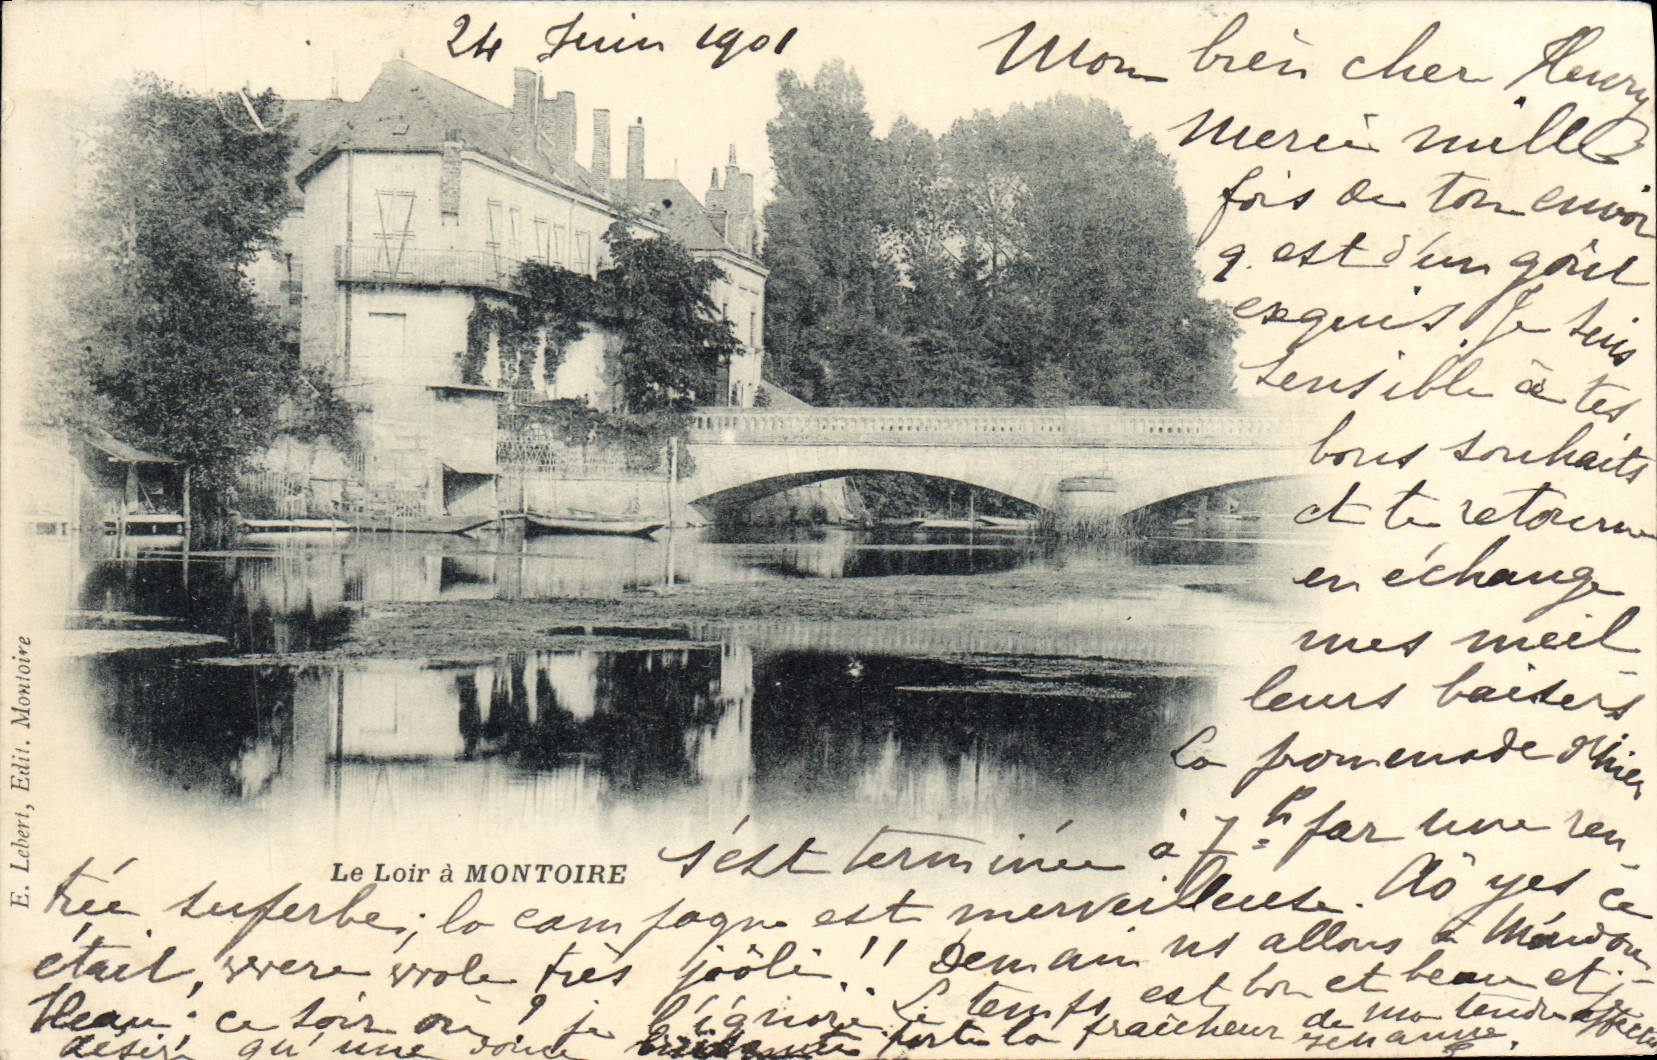 24 Juin 1901
Mon bien cher Henry
Merci mille
fois de ton envoi
q. est d'un goût
exquis. Je suis
sensible à tes
bons souhaits
et te retourne
en échange
mes meil-
leurs baisers
La promenade d'hier
s'est terminée à 7h par une ren-
trée superbe; la campagne est merveilleuse. Aô yes ce
était, vvere vvole très joôli!! Demain ns allons à
Heau; ce soir où? je l'ignore. Le temps est bon et beau et je
désire qu'une douce porte la fraîcheur de ma tendre affection
Le Loir à MONTOIRE
E. Lebert, Edit. Montoire